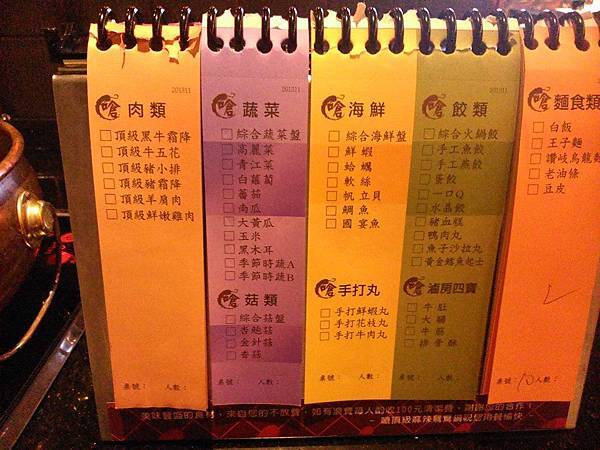 201311
嗆 肉類
頂級黑牛霜降
頂級牛五花
頂級豬小排
頂級豬霜降
頂級羊肩肉
頂級鮮嫩雞肉
桌號： 人數：
201311
嗆 蔬菜
綜合蔬菜盤
高麗菜
青江菜
白蘿蔔
蕃茄
南瓜
大黃瓜
玉米
黑木耳
季節時蔬A
季節時蔬B
嗆 菇類
綜合菇盤
杏鮑菇
金針菇
香菇
桌號： 人數：
201311
嗆 海鮮
綜合海鮮盤
鮮蝦
蛤蠣
軟絲
帆立貝
鯛魚
國宴魚
嗆 手打丸
手打鮮蝦丸
手打花枝丸
手打牛肉丸
桌號： 人數：
201311
嗆 餃類
綜合火鍋餃
手工魚餃
手工燕餃
蛋餃
一口Q
水晶餃
豬血糕
鴨肉丸
魚子沙拉丸
黃金鱈魚起士
嗆 滷房四寶
牛肚
大腸
牛筋
排骨酥
桌號： 人數：
嗆 麵食類
白飯
王子麵
讚岐烏龍麵
老油條
豆皮
桌號： 10 人數：
美味嚴選的食材，來自您的不浪費，如有浪費每人酌收100元清潔費，謝謝您的合作！
~ 嗆頂級麻辣鴛鴦鍋祝您用餐愉快 ~